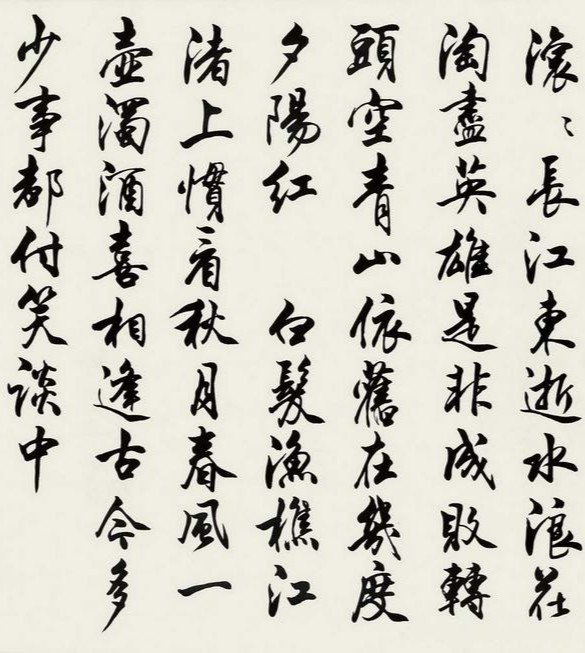 滾〻長江東逝水浪花
淘盡英雄是非成敗轉
頭空青山依舊在幾度
夕陽紅 白髮漁樵江
渚上慣看秋月春風一
壺濁酒喜相逢古今多
少事都付笑談中